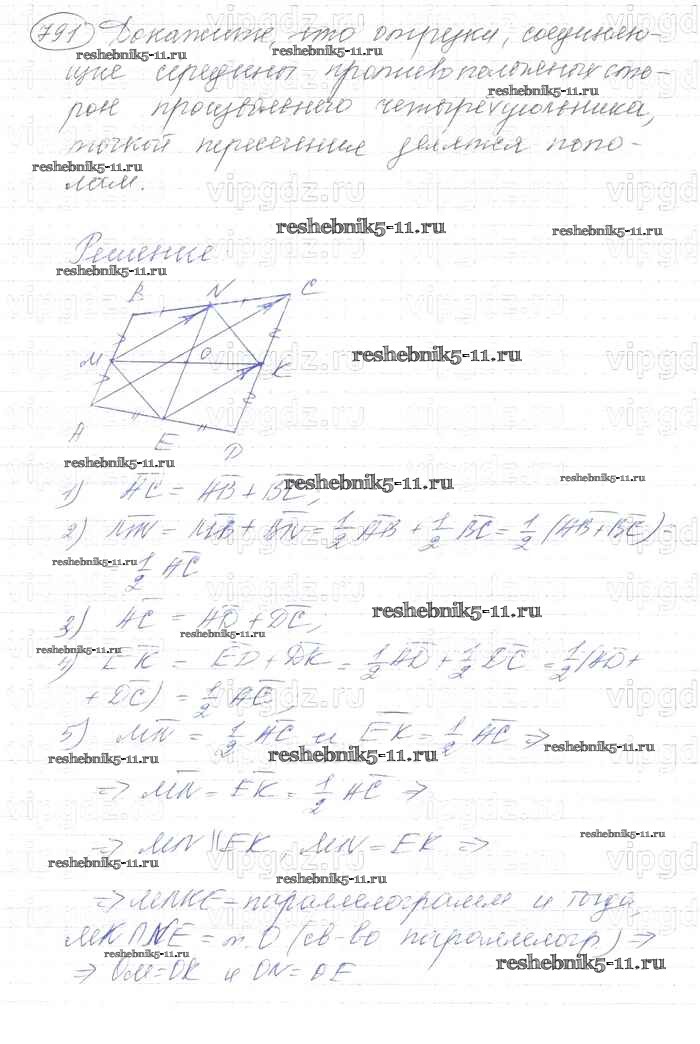 791) Докажите, что отрезки, соединяю-
щие середины противоположных сто-
рон произвольного четырёхугольника,
точкой пересечения делятся попо-
лам.
Решение
B N C
M O K
A E D
1) AC = AB + BC;
2) MN = MB + BN = 1/2 AB + 1/2 BC = 1/2 (AB + BC) =
= 1/2 AC
3) AC = AD + DC;
4) EK = ED + DK = 1/2 AD + 1/2 DC = 1/2 (AD +
+ DC) = 1/2 AC;
5) MN = 1/2 AC и EK = 1/2 AC ⇒
⇒ MN = EK = 1/2 AC ⇒
⇒ MN || EK MN = EK ⇒
⇒ MNKE – параллелограмм и тогда,
MK ∩ NE = т. O (св-во параллелогр) ⇒
⇒ OM = OK и ON = OE
reshebnik5-11.ru
vipgdz.ru